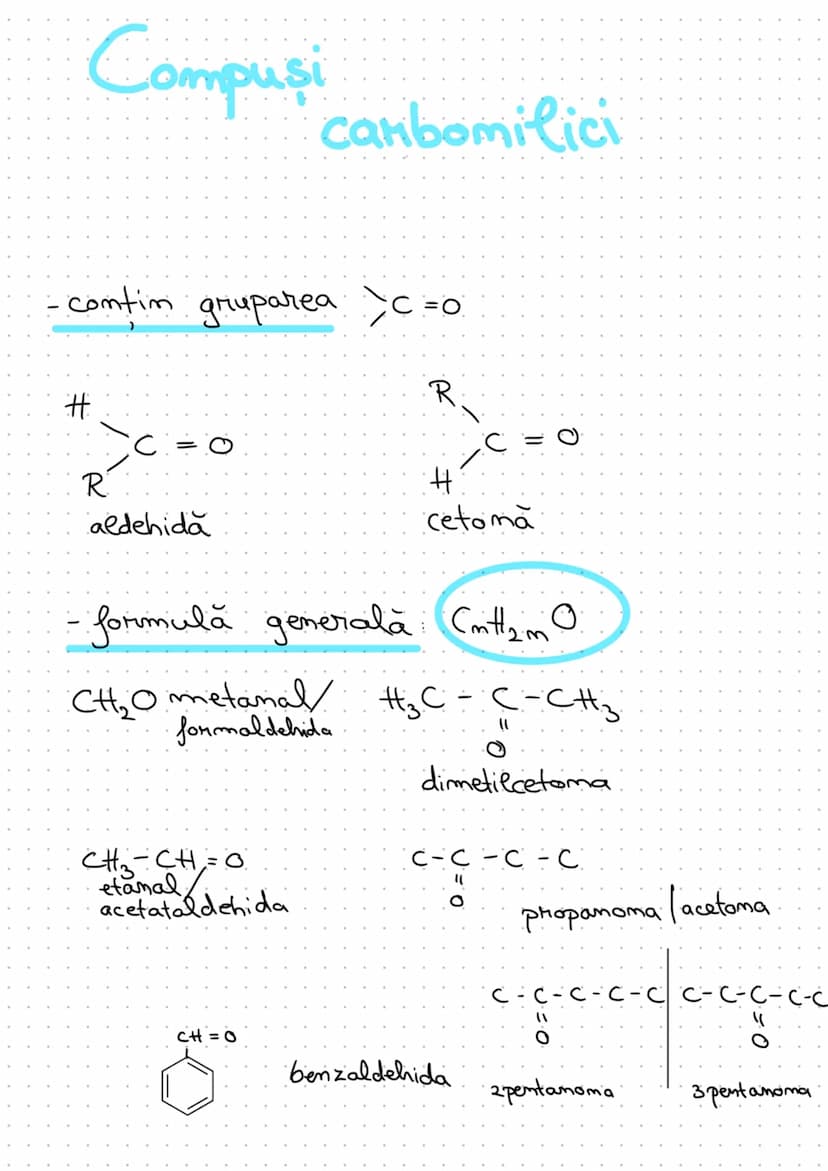 Compuși
carbonilici
- conțin gruparea >C=O
H
R
C = O
aldehidă
R
H
C = O
cetonă
- formulă generală: CnH2nO
CH2O metanal/
formaldehida
H3C - C - CH3
=
O
dimetilcetona
CH3-CH=O
etanal/
acetataldehida
C-C-C-C
=
O
propanona/acetona
CH=O
benzaldehida
C-C-C-C-C
=
O
2pentanona
C-C-C-C-C
=
O
3pentanona